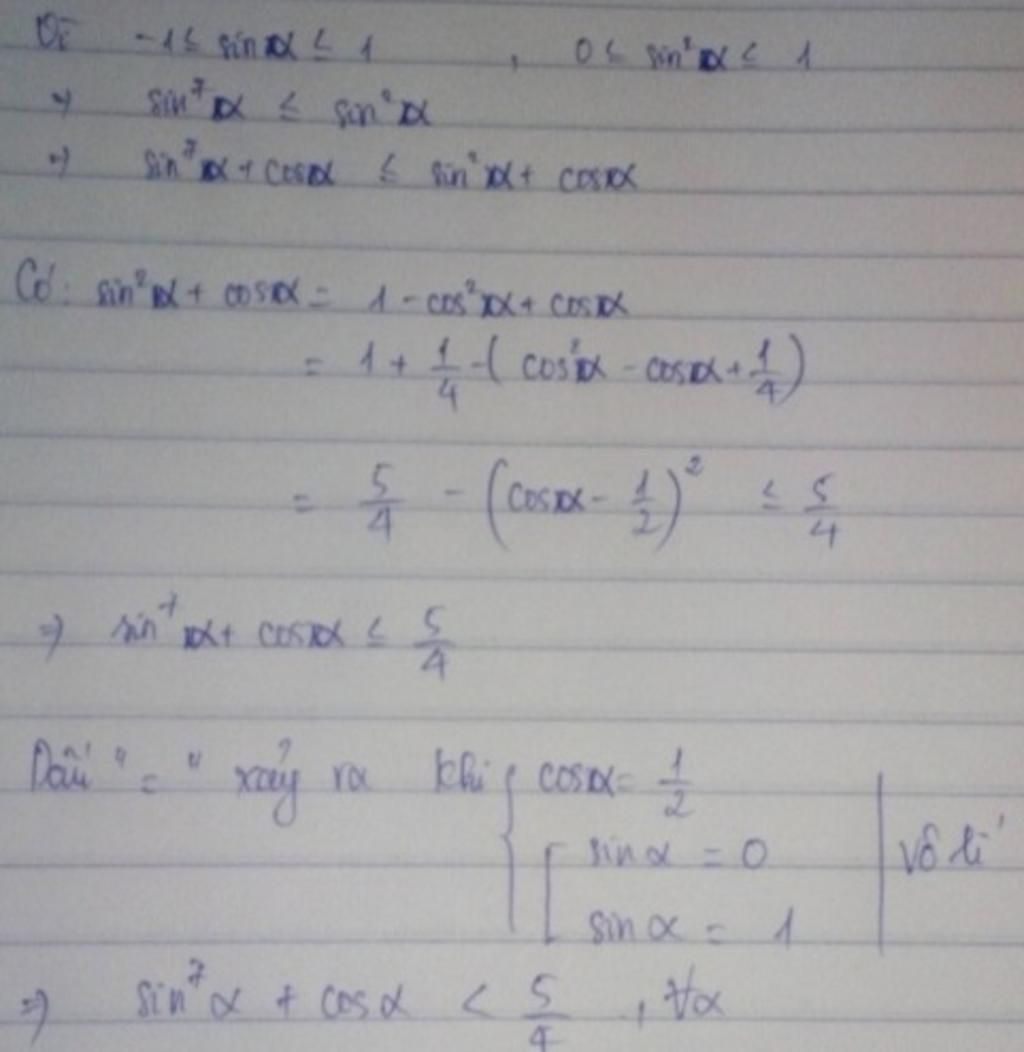 Vì -1 ≤ sinα ≤ 1 , 0 ≤ sin²α ≤ 1
⇒ sin⁷α ≤ sin²α
⇒ sin⁷α + cosα ≤ sin²α + cosα
Có: sin²α + cosα = 1 - cos²α + cosα
= 1 + 1/4 - ( cos²α - cosα + 1/4 )
= 5/4 - ( cosα - 1/2 )² ≤ 5/4
⇒ sin⁷α + cosα ≤ 5/4
Dấu "=" xảy ra khi { cosα = 1/2
[ sinα = 0 | vô lí
sinα = 1
⇒ sin⁷α + cosα < 5/4 , ∀α